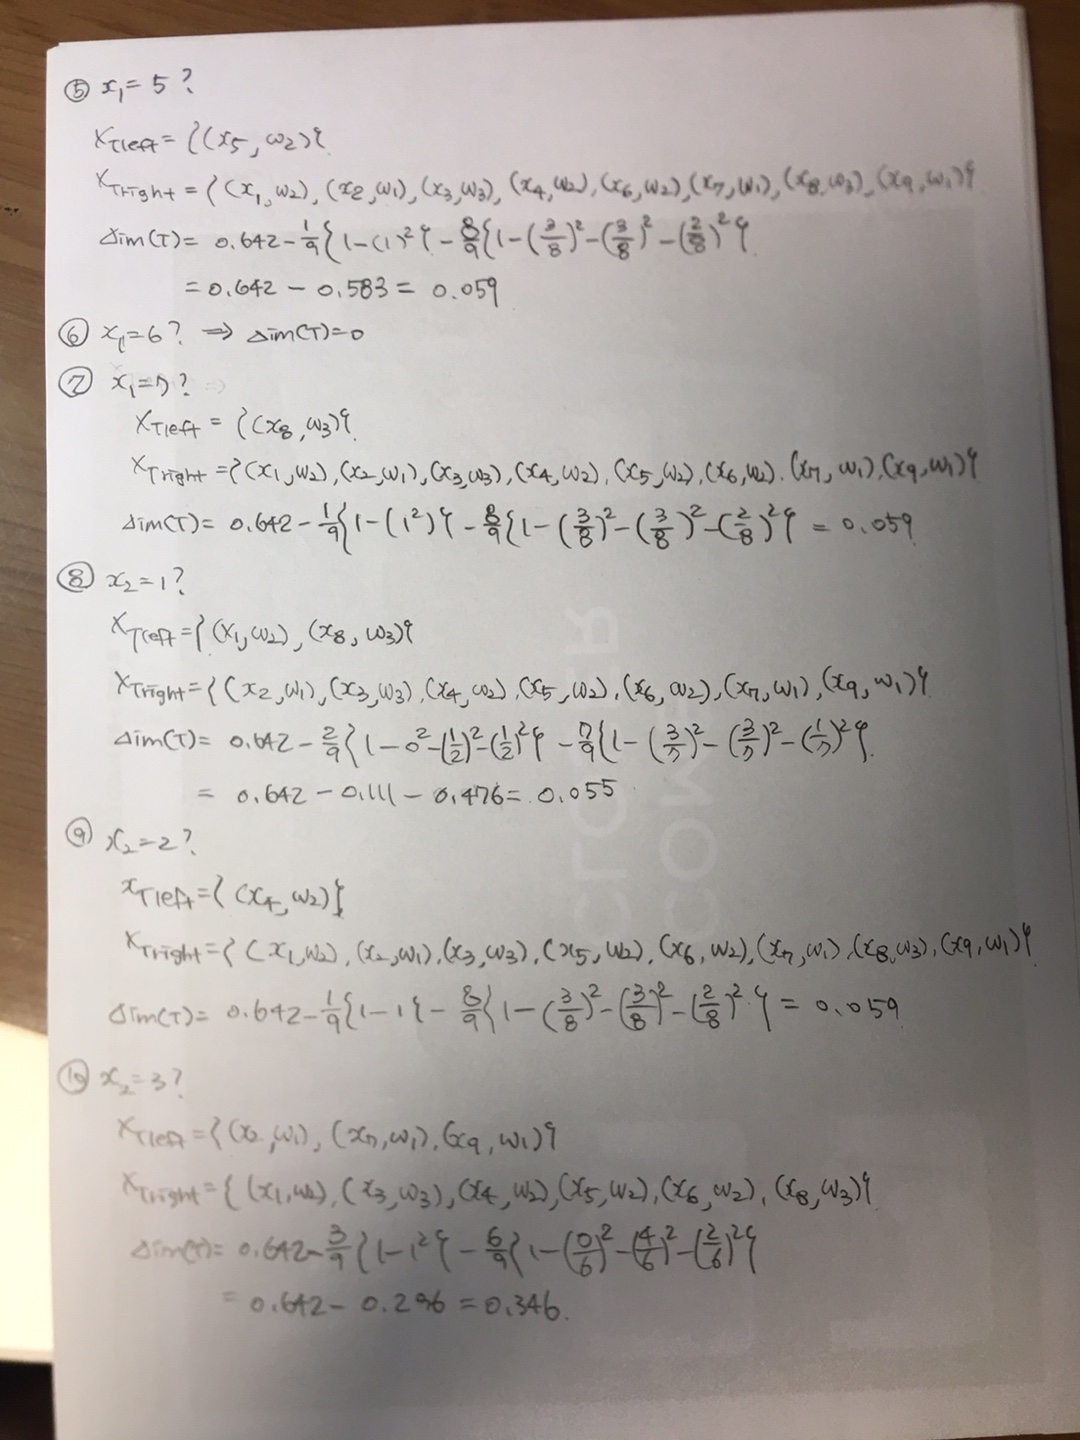 ⑤ x₁ = 5 ?
X_Tleft = {(x₅, ω₂)}
X_Tright = {(x₁, ω₂), (x₂, ω₁), (x₃, ω₃), (x₄, ω₂), (x₆, ω₂), (x₇, ω₁), (x₈, ω₃), (x₉, ω₁)}
Δim(T) = 0.642 - 1/9{1-(1)²} - 8/9{1-(3/8)²-(3/8)²-(2/8)²}
= 0.642 - 0.583 = 0.059
⑥ x₁=6? ⇒ Δim(T)=0
⑦ x₁=7?
X_Tleft = {(x₈, ω₃)}
X_Tright = {(x₁, ω₂), (x₂, ω₁), (x₃, ω₃), (x₄, ω₂), (x₅, ω₂), (x₆, ω₂), (x₇, ω₁), (x₉, ω₁)}
Δim(T) = 0.642 - 1/9{1-(1²)} - 8/9{1-(3/8)²-(3/8)²-(2/8)²} = 0.059
⑧ x₂=1?
X_Tleft = {(x₁, ω₂), (x₈, ω₃)}
X_Tright = {(x₂, ω₁), (x₃, ω₃), (x₄, ω₂), (x₅, ω₂), (x₆, ω₂), (x₇, ω₁), (x₉, ω₁)}
Δim(T) = 0.642 - 2/9{1-0²-(1/2)²-(1/2)²} - 7/9{1-(3/7)²-(3/7)²-(1/7)²}
= 0.642 - 0.111 - 0.476 = 0.055
⑨ x₂=2?
x_Tleft = {(x₄, ω₂)}
X_Tright = {(x₁, ω₂), (x₂, ω₁), (x₃, ω₃), (x₅, ω₂), (x₆, ω₂), (x₇, ω₁), (x₈, ω₃), (x₉, ω₁)}
Δim(T) = 0.642 - 1/9{1-1} - 8/9{1-(3/8)²-(3/8)²-(2/8)²} = 0.059
⑩ x₂=3?
X_Tleft = {(x₂, ω₁), (x₇, ω₁), (x₉, ω₁)}
X_Tright = {(x₁, ω₂), (x₃, ω₃), (x₄, ω₂), (x₅, ω₂), (x₆, ω₂), (x₈, ω₃)}
Δim(T) = 0.642 - 3/9{1-1²} - 6/9{1-(0/6)²-(4/6)²-(2/6)²}
= 0.642 - 0.296 = 0.346.